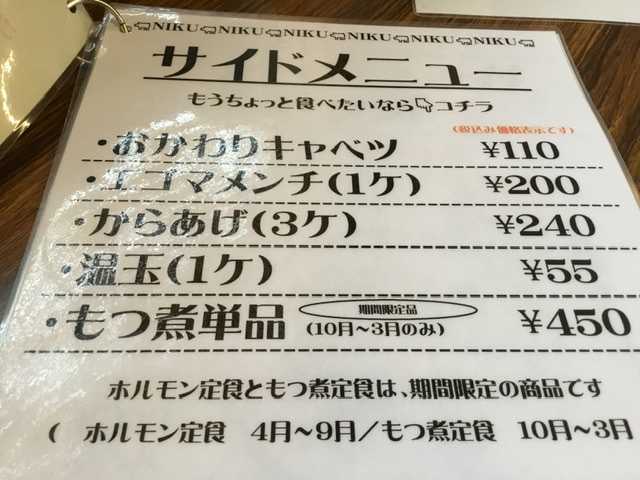 NIKU NIKU NIKU NIKU NIKU NIKU
サイドメニュー
もうちょっと食べたいなら コチラ
(税込み価格表示です)
・おかわりキャベツ ¥110
・エゴマメンチ(1ケ) ¥200
・からあげ(3ケ) ¥240
・温玉(1ケ) ¥55
・もつ煮単品 期間限定品 (10月~3月のみ) ¥450
ホルモン定食ともつ煮定食は、期間限定の商品です
( ホルモン定食 4月~9月/もつ煮定食 10月~3月